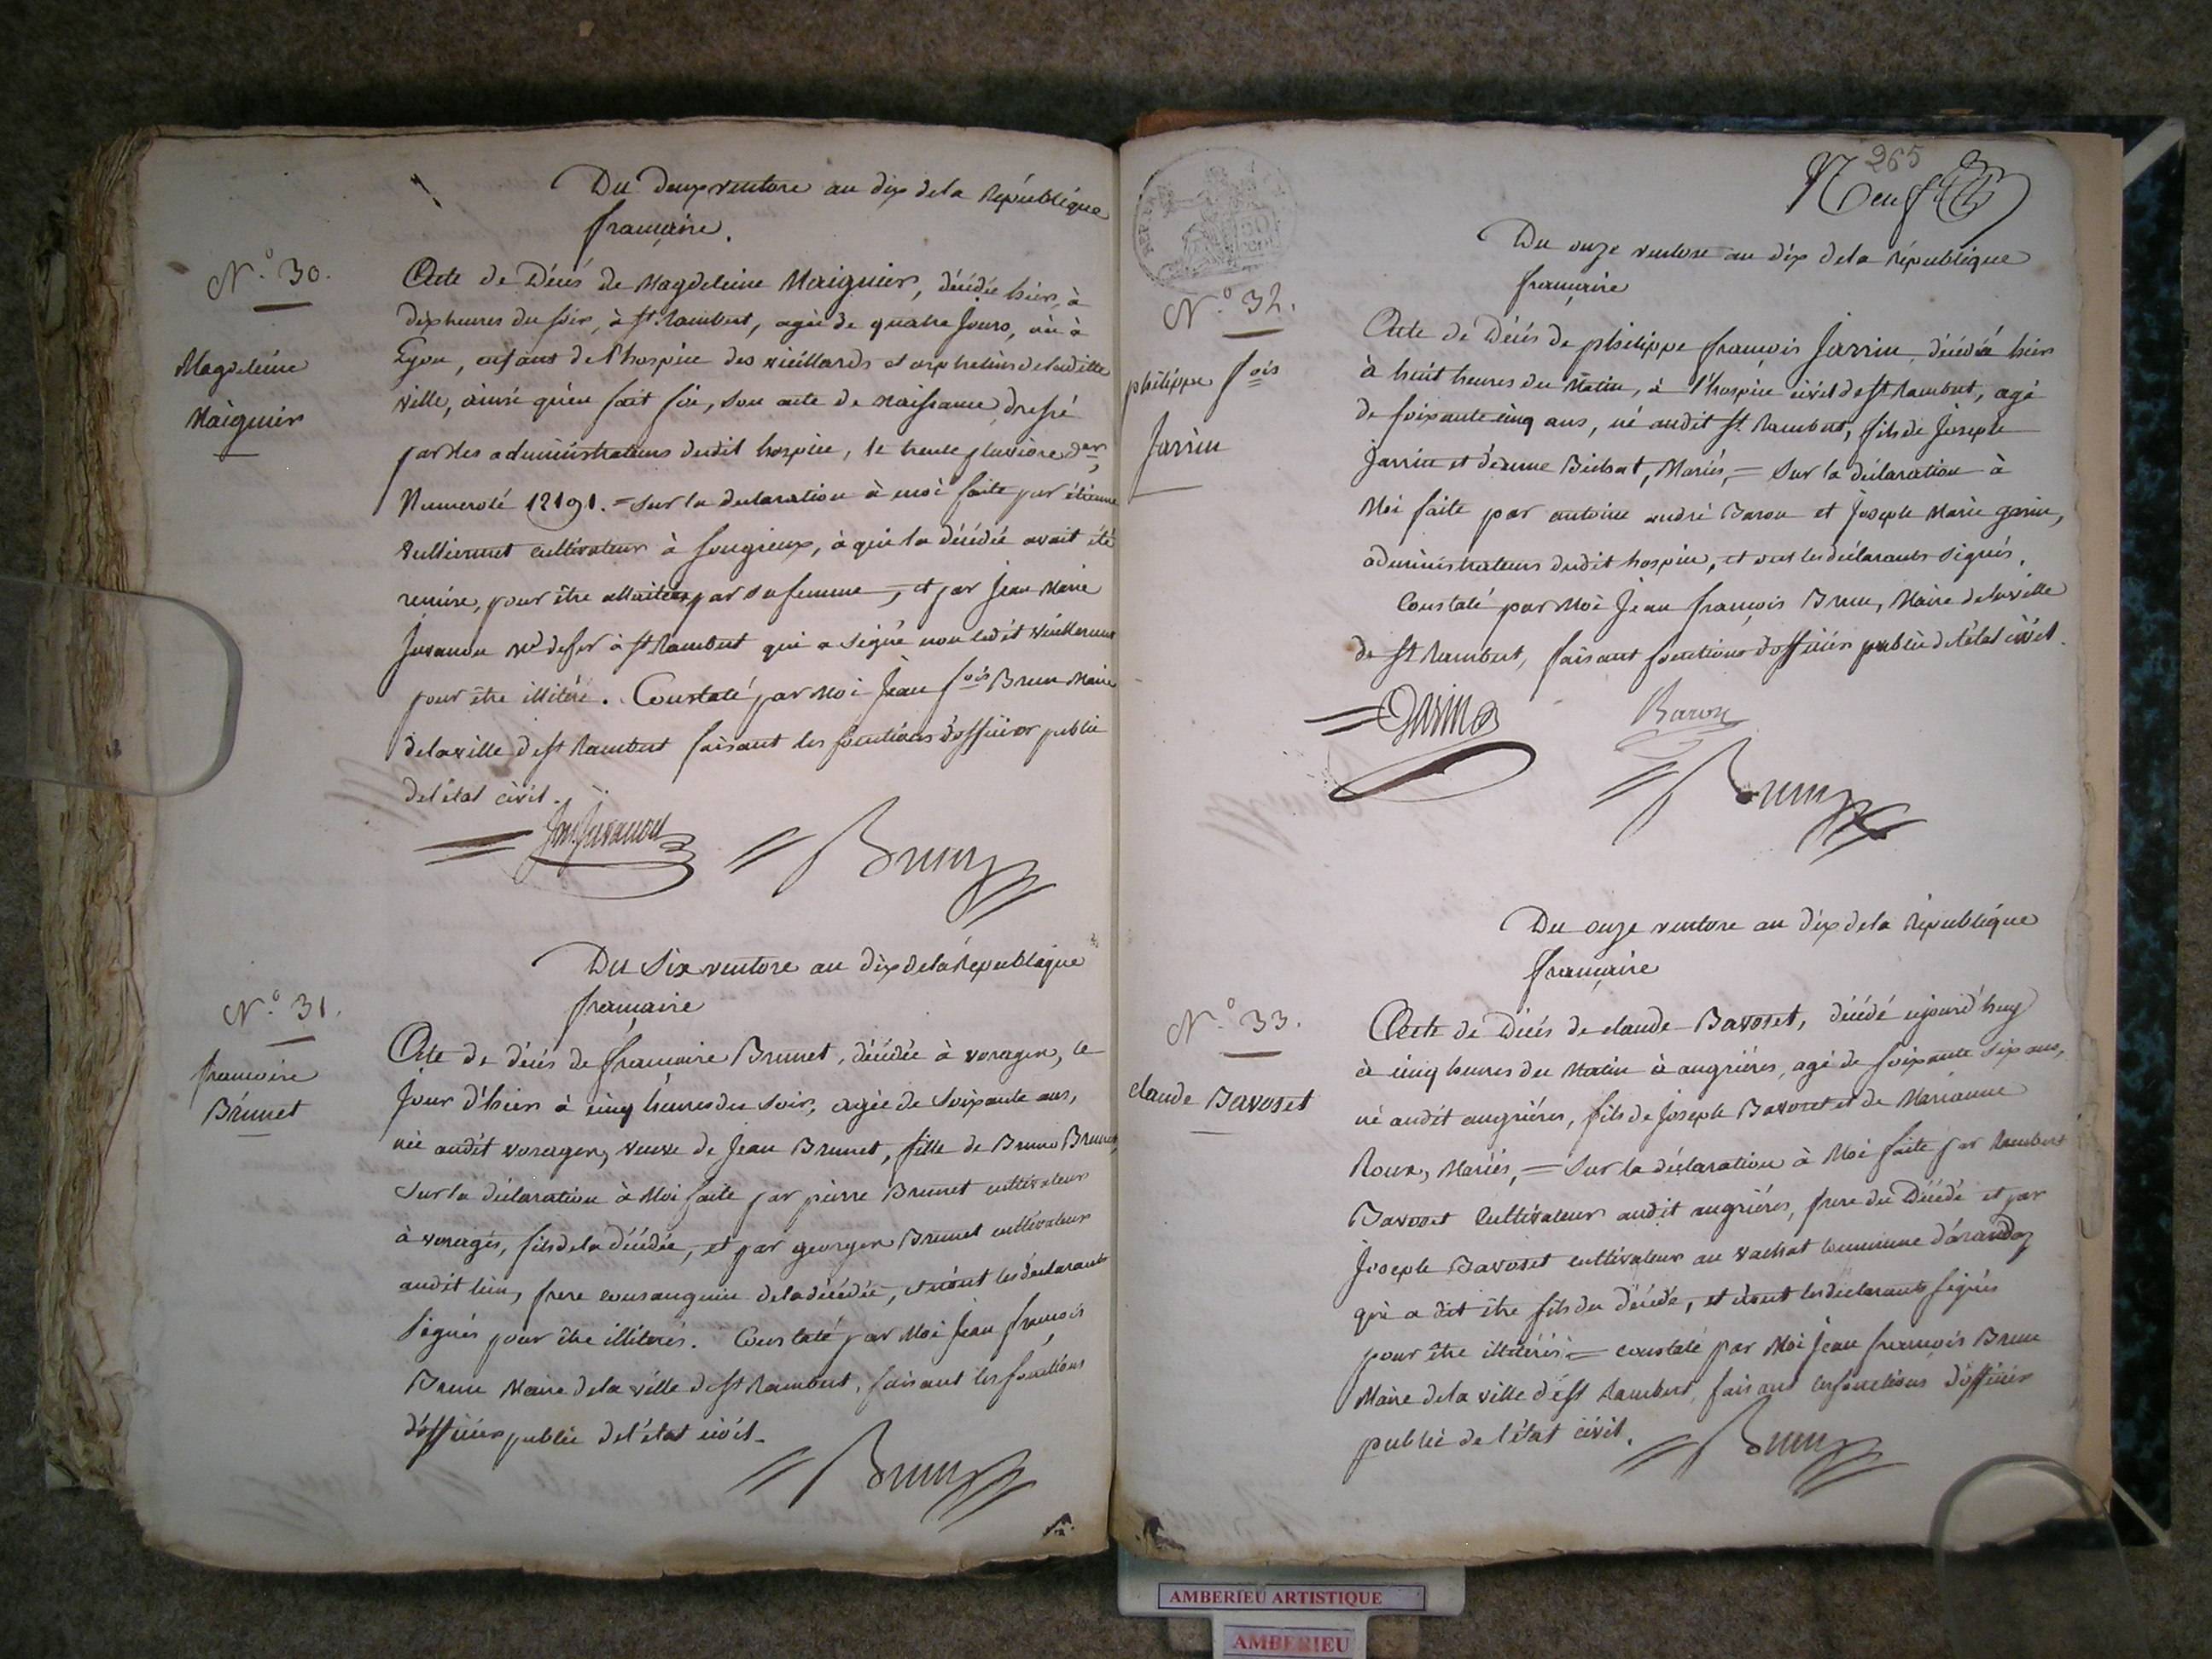 Du deux ventose an dix de la République
française.
N.º 30.
Magdeleine
Maignier
Acte de Décès de Magdeleine Maignier, décédée hier, à
dix heures du soir, à St. Rambert, agée de quatre Jours, née à
Lyon, enfant de l'hospice des vieillards et orphelins de ladite
ville, ainsi qu'en fait foi, son acte de naissance, dressé
par les administrateurs dudit hospice, le trente pluviose der
Numeroté 12191. = Sur la declaration à moi faite par étienne
cultivateur à Songrieux, à qui la décédée avait été
remise, pour être allaitée par sa femme, et par Jean Marie
Juvanon à St Rambert qui a signé non ledit
pour être illitéré. Constaté par Moi Jean fois Brun Maire
de la ville de St Rambert faisant les fonctions d'officier public
de l'état civil.
Juvanon
Brun
Du Six ventose an dix de la République
française
N.º 31.
françoise
Brunet
Acte de décès de françoise Brunet, décédée à vorages, le
Jour d'hier à cinq heures du soir, agée de soixante ans,
née audit vorages, veuve de Jean Brunet, fille de Bruno Brunet,
Sur la déclaration à Moi faite par pierre Brunet cultivateur
à vorages, fils de la décédée, et par georges Brunet cultivateur
audit lieu, frere consanguin de la décédée, et n'ont les déclarants
signés pour être illiterés. Constaté par Moi Jean françois
Brun Maire de la ville de St Rambert, faisant les fonctions
d'officier public de l'état civil.
Brun
265
Neuf
50
cent
Du onze ventose an dix de la République
française
N.º 32.
philippe fois
Jarrin
Acte de Décès de philippe françois Jarrin, décédé hier
à huit heures du Matin, à l'hospice civil de St Rambert, agé
de soixante cinq ans, né audit St. Rambert, fils de Joseph
Jarrin et d'anne Bichat, Mariés, = Sur la déclaration à
Moi faite par antoine andré Baron et Joseph Marie garin,
administrateurs dudit hospice, et ont les déclarants signés.
Constaté par Moi Jean françois Brun, Maire de la ville
de St Rambert, faisant fonctions d'officier public de l'état civil.
Garin
Baron
Brun
Du onze ventose an dix de la République
française
N.º 33.
claude Bavoset
Acte de Décès de claude Bavoset, décédé aujourd'huy
à cinq heures du Matin à angrières, agé de soixante six ans,
né audit angrières, fils de Joseph Bavoset et de Marianne
Roux, Mariés, = Sur la déclaration à Moi faite par Rambert
Bavoset Cultivateur audit angrières, frere du Décédé et par
Joseph Bavoset cultivateur au vachat commune d'arandas
qui a dit être fils du décédé, et n'ont les declarants signés
pour être illitérés = constaté par Moi Jean françois Brun
Maire de la ville de St Rambert, faisant les fonctions d'officier
public de l'état civil.
Brun
AMBERIEU ARTISTIQUE
AMBERIEU